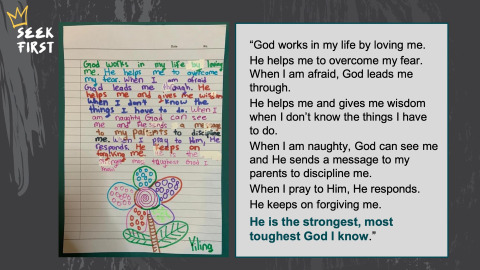 SEEK
FIRST
God works in my life by loving
me. He helps me to overcome
my fear. When I am afraid
God leads me through. He
helps me and gives me wisdom
when I don't know the
things I have to do. When I
am naughty, God can see
me and He sends a message
to my parents to discipline
me. When I pray to Him, He
responds. He keeps on
forgiving me. He is the
strongest, most toughest God I
know.
Yiling
"God works in my life by loving me.
He helps me to overcome my fear.
When I am afraid, God leads me
through.
He helps me and gives me wisdom
when I don't know the things I have
to do.
When I am naughty, God can see me
and He sends a message to my
parents to discipline me.
When I pray to Him, He responds.
He keeps on forgiving me.
He is the strongest, most
toughest God I know."